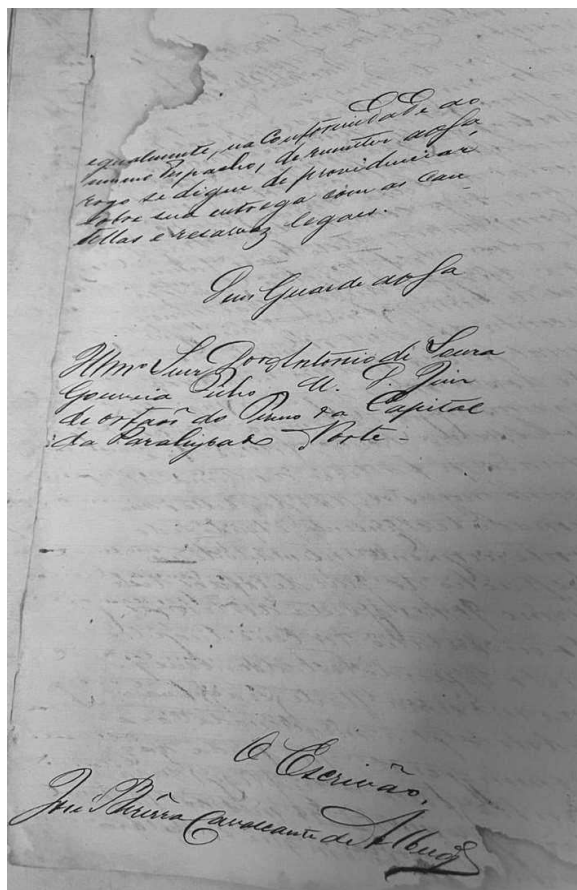 egualmente, na Conformidade do
mesmo despacho, de remetter a V. Sa
rogo se digne de providenciar
sobre sua entrega com as cau-
tellas e resalvas legaes.
Deus Guarde a V. Sa
Illmo Senr Dor Antonio de Souza
Gouveia Filho M. D. Juiz
de orfaõs do Termo da Capital
da Parahyba do Norte -
O Escrivão,
José Bezerra Cavalcante de Albuqe